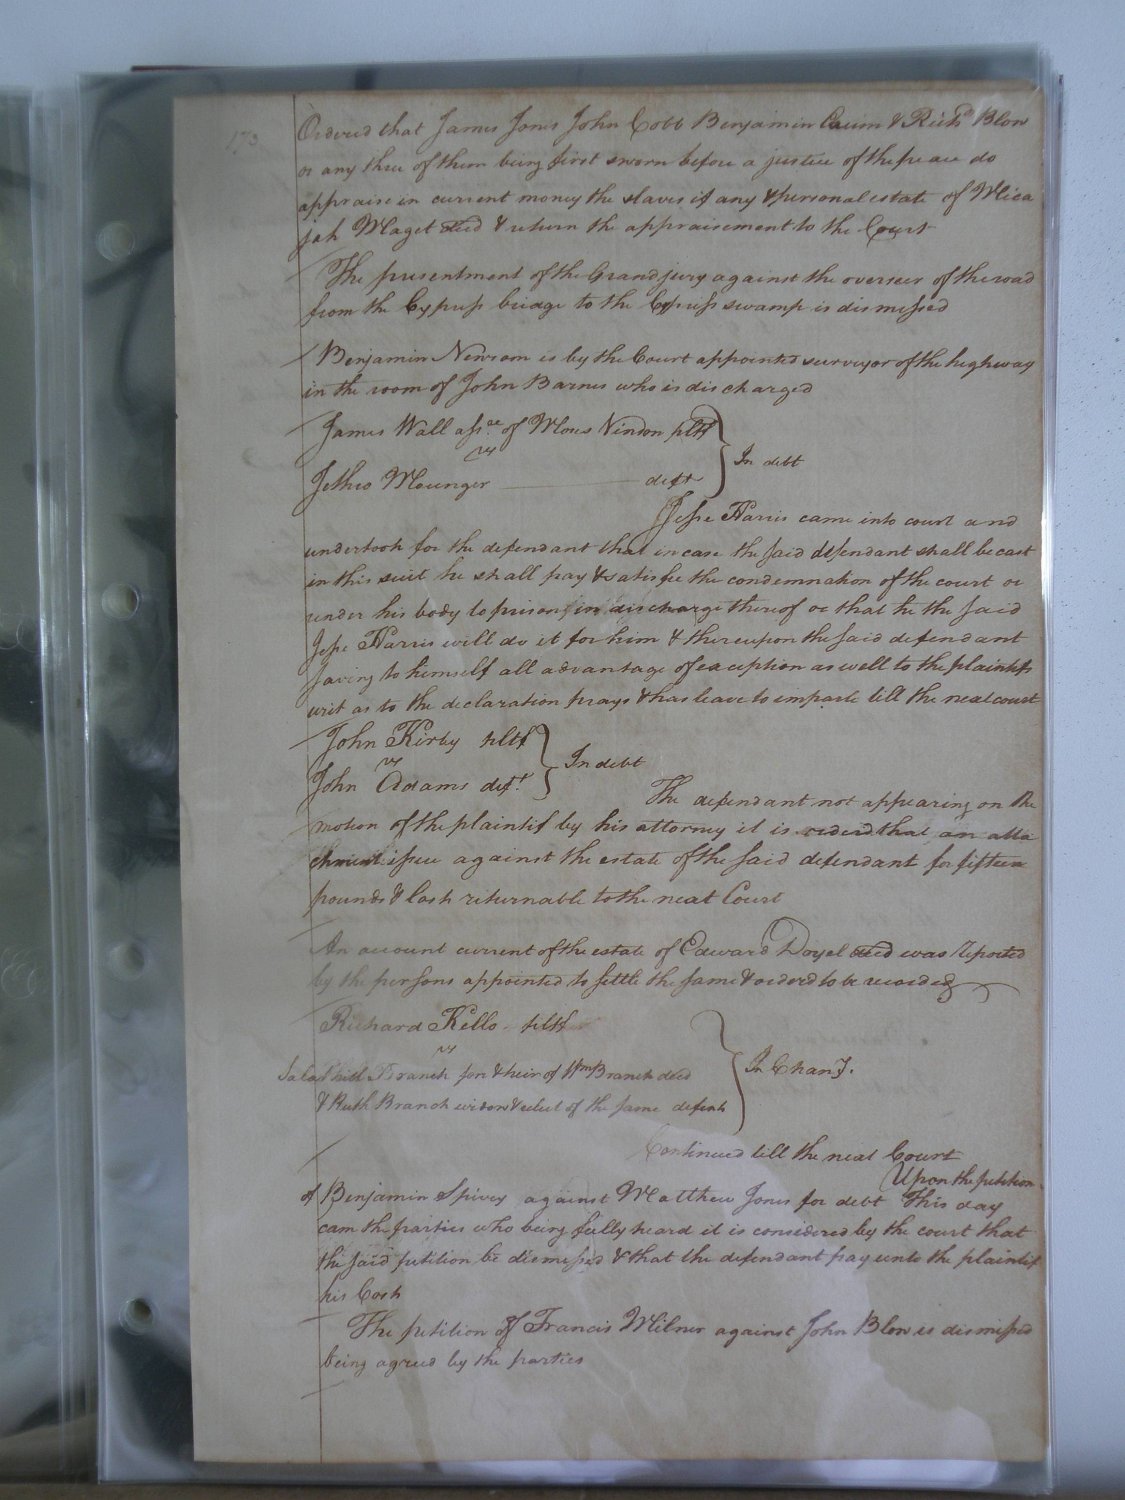 173
Ordered that James Jones John Cobb Benjamin Crum & Richd Blow
or any three of them being first sworn before a justice of the peace do
appraise in current money the slaves if any & personal estate of Mica
jah Maget deed & return the appraisement to the Court
The presentment of the Grand jury against the overseer of the road
from the Cypress bridge to the Cypress swamp is dismissed
Benjamin Newsom is by the Court appointed surveyor of the highway
in the room of John Barnes who is discharged
James Wall assee of Moses Vinson pltf
vs
In debt
Jethro Mounger deft
Jesse Harris came into court and
undertook for the defendant that in case the said defendant shall be cast
in this suit he shall pay & satisfie the condemnation of the court or
under his body to prison in discharge thereof or that he the said
Jesse Harris will do it for him & thereupon the said defendant
saving to himself all advantage of exception as well to the plaintifs
writ as to the declaration prays & has leave to imparle till the next court
John Kirby pltf
vs
In debt
John Adams deft
The defendant not appearing on the
motion of the plaintif by his attorney it is orderd that an atta
chment issue against the estate of the said defendant for fifteen
pounds & Costs returnable to the next Court
An account current of the estate of Edward Doyel deed was reported
by the persons appointed to settle the same & orderd to be recorded
Richard Kello pltf
vs
In Chany.
Branch son & heir of Wm Branch deed
& Ruth Branch widow & relict of the same defents
Continued till the next Court
Upon the petition
of Benjamin Spivey against Matthew Jones for debt This day
cam the parties who being fully heard it is considered by the court that
the said petition be dismissed & that the defendant pay unto the plaintif
his Costs
The petition of Francis Milner against John Blow is dismissed
being agreed by the parties